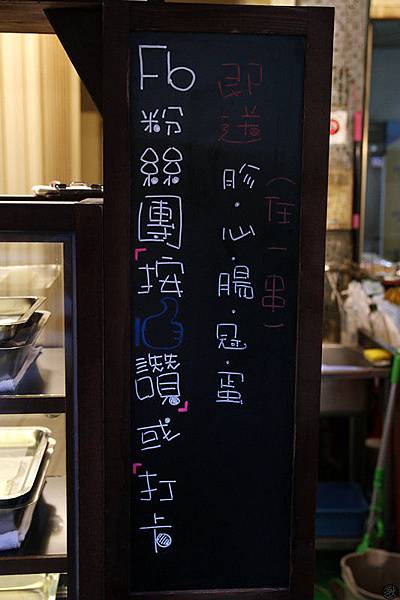 Fb粉絲團「按讚」或「打卡
即送
胗.心.腸.冠.蛋
(任一串)